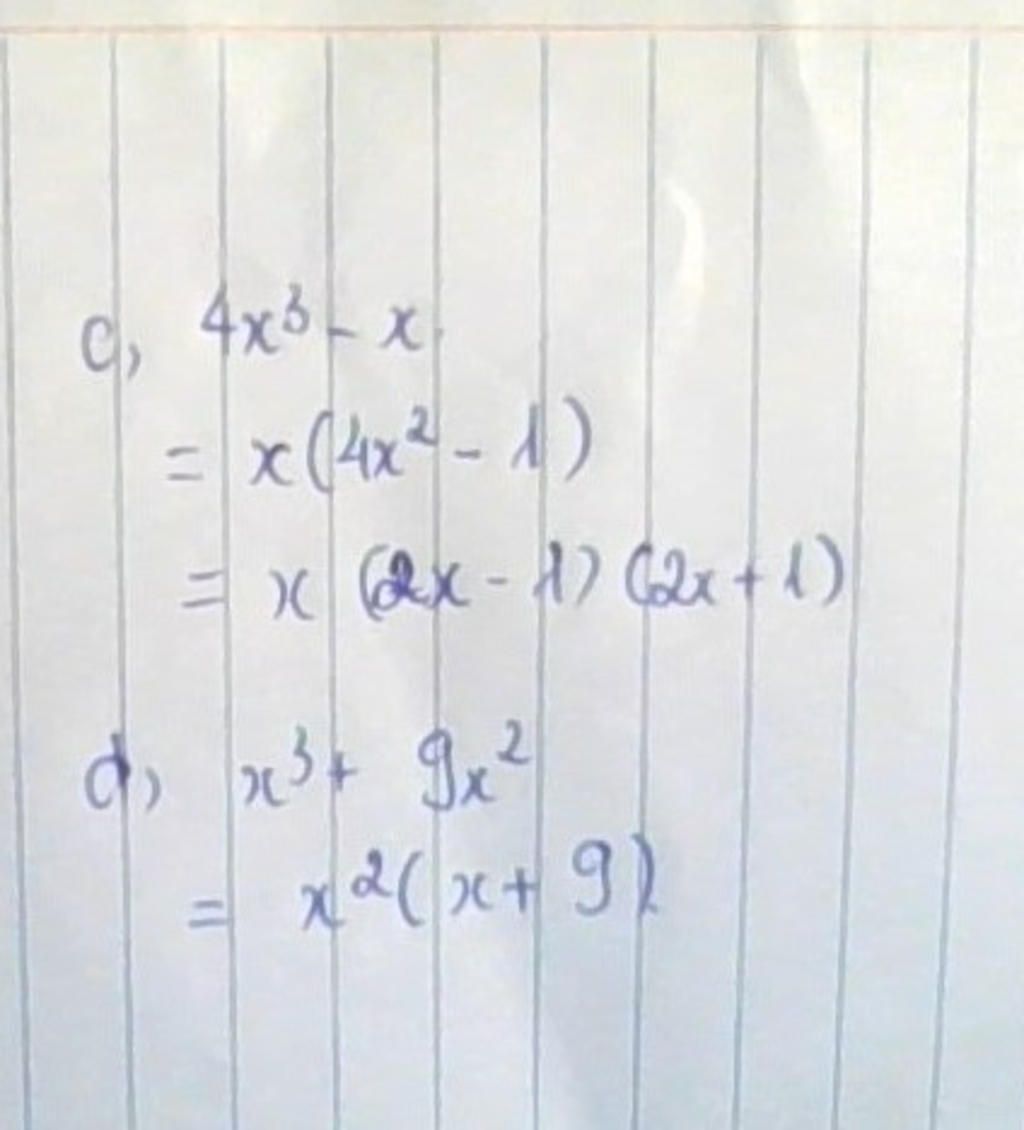 c, 4x³ - x
= x(4x² - 1)
= x (2x - 1) (2x + 1)
d, x³ + 9x²
= x²(x + 9)